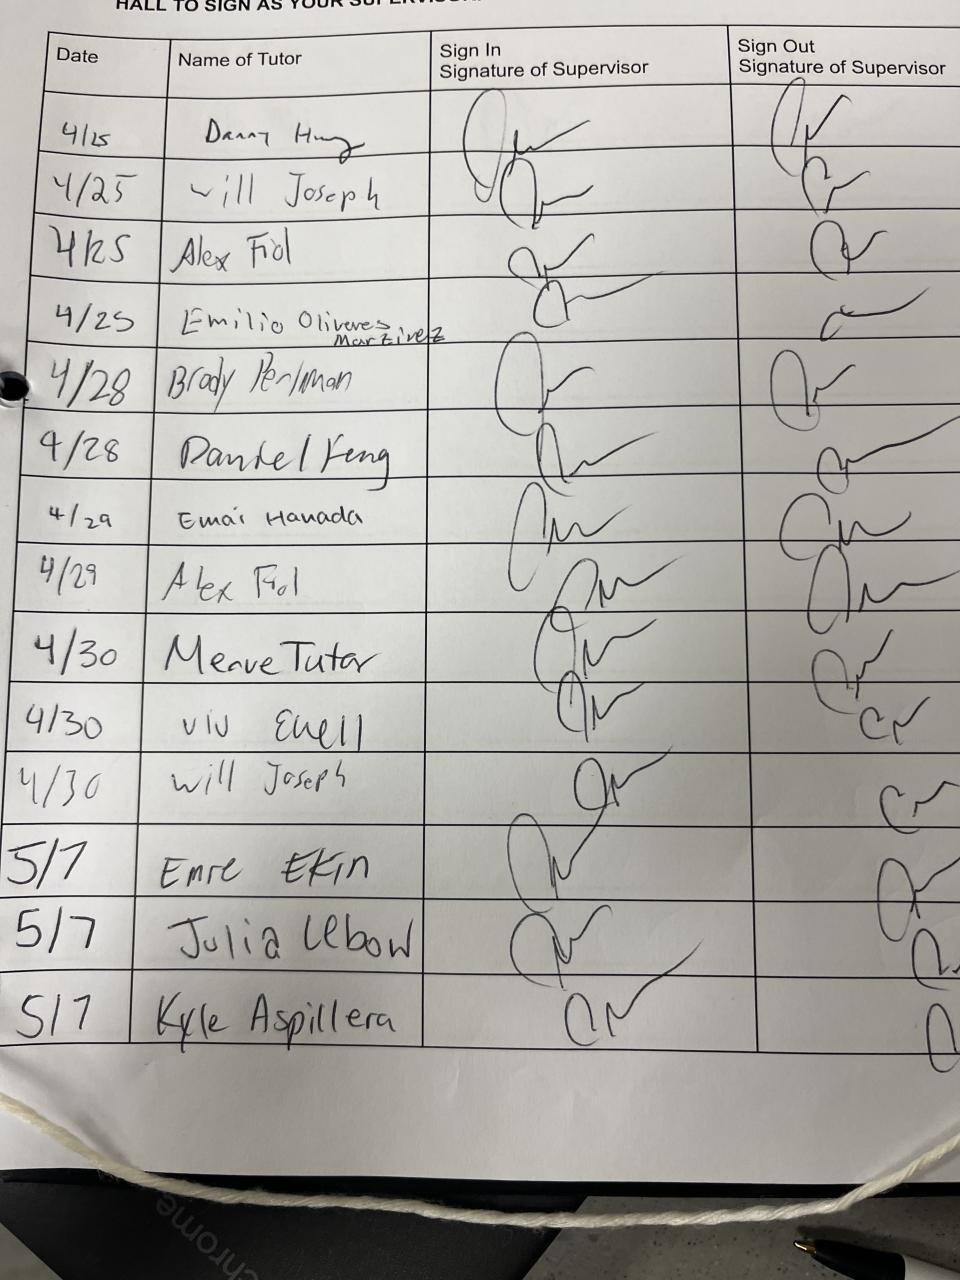 HALL TO SIGN AS YOUR SUPERVISOR.
Date Name of Tutor Sign In Signature of Supervisor Sign Out Signature of Supervisor
4/25 Danny
4/25 Will Joseph
4/25 Alex Fiol
4/25 Emilio Oliveres
4/28 Brady Perlman
4/28 Daniel Feng
4/29 Emai Hanada
4/29 Alex Fiol
4/30 Meave Tutor
4/30 Viv
4/30 Will Joseph
5/7 Emre Ekin
5/7 Julia Lebow
5/7 Kyle Aspillera
chrome